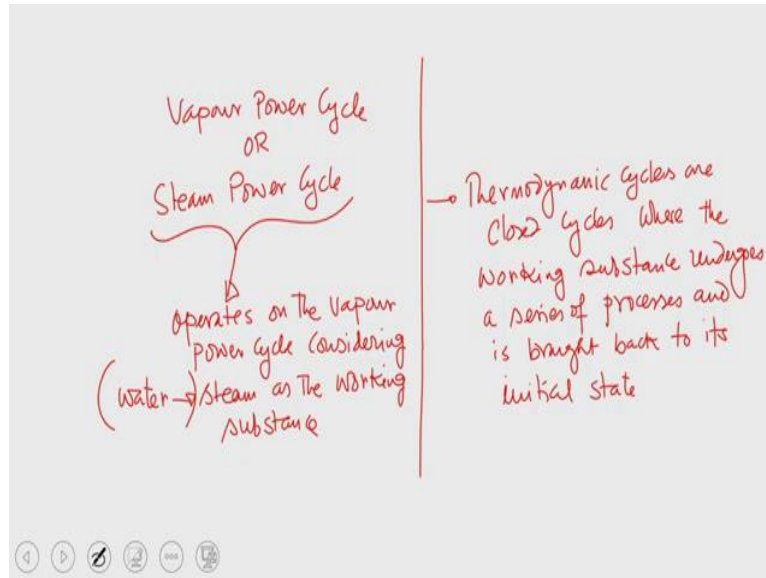 Vapour Power Cycle
OR
Steam Power Cycle
operates on the vapour
power cycle considering
(water →) steam as the working
substance
→ Thermodynamic cycles are
closed cycles where the
working substance undergoes
a series of processes and
is brought back to its
initial state